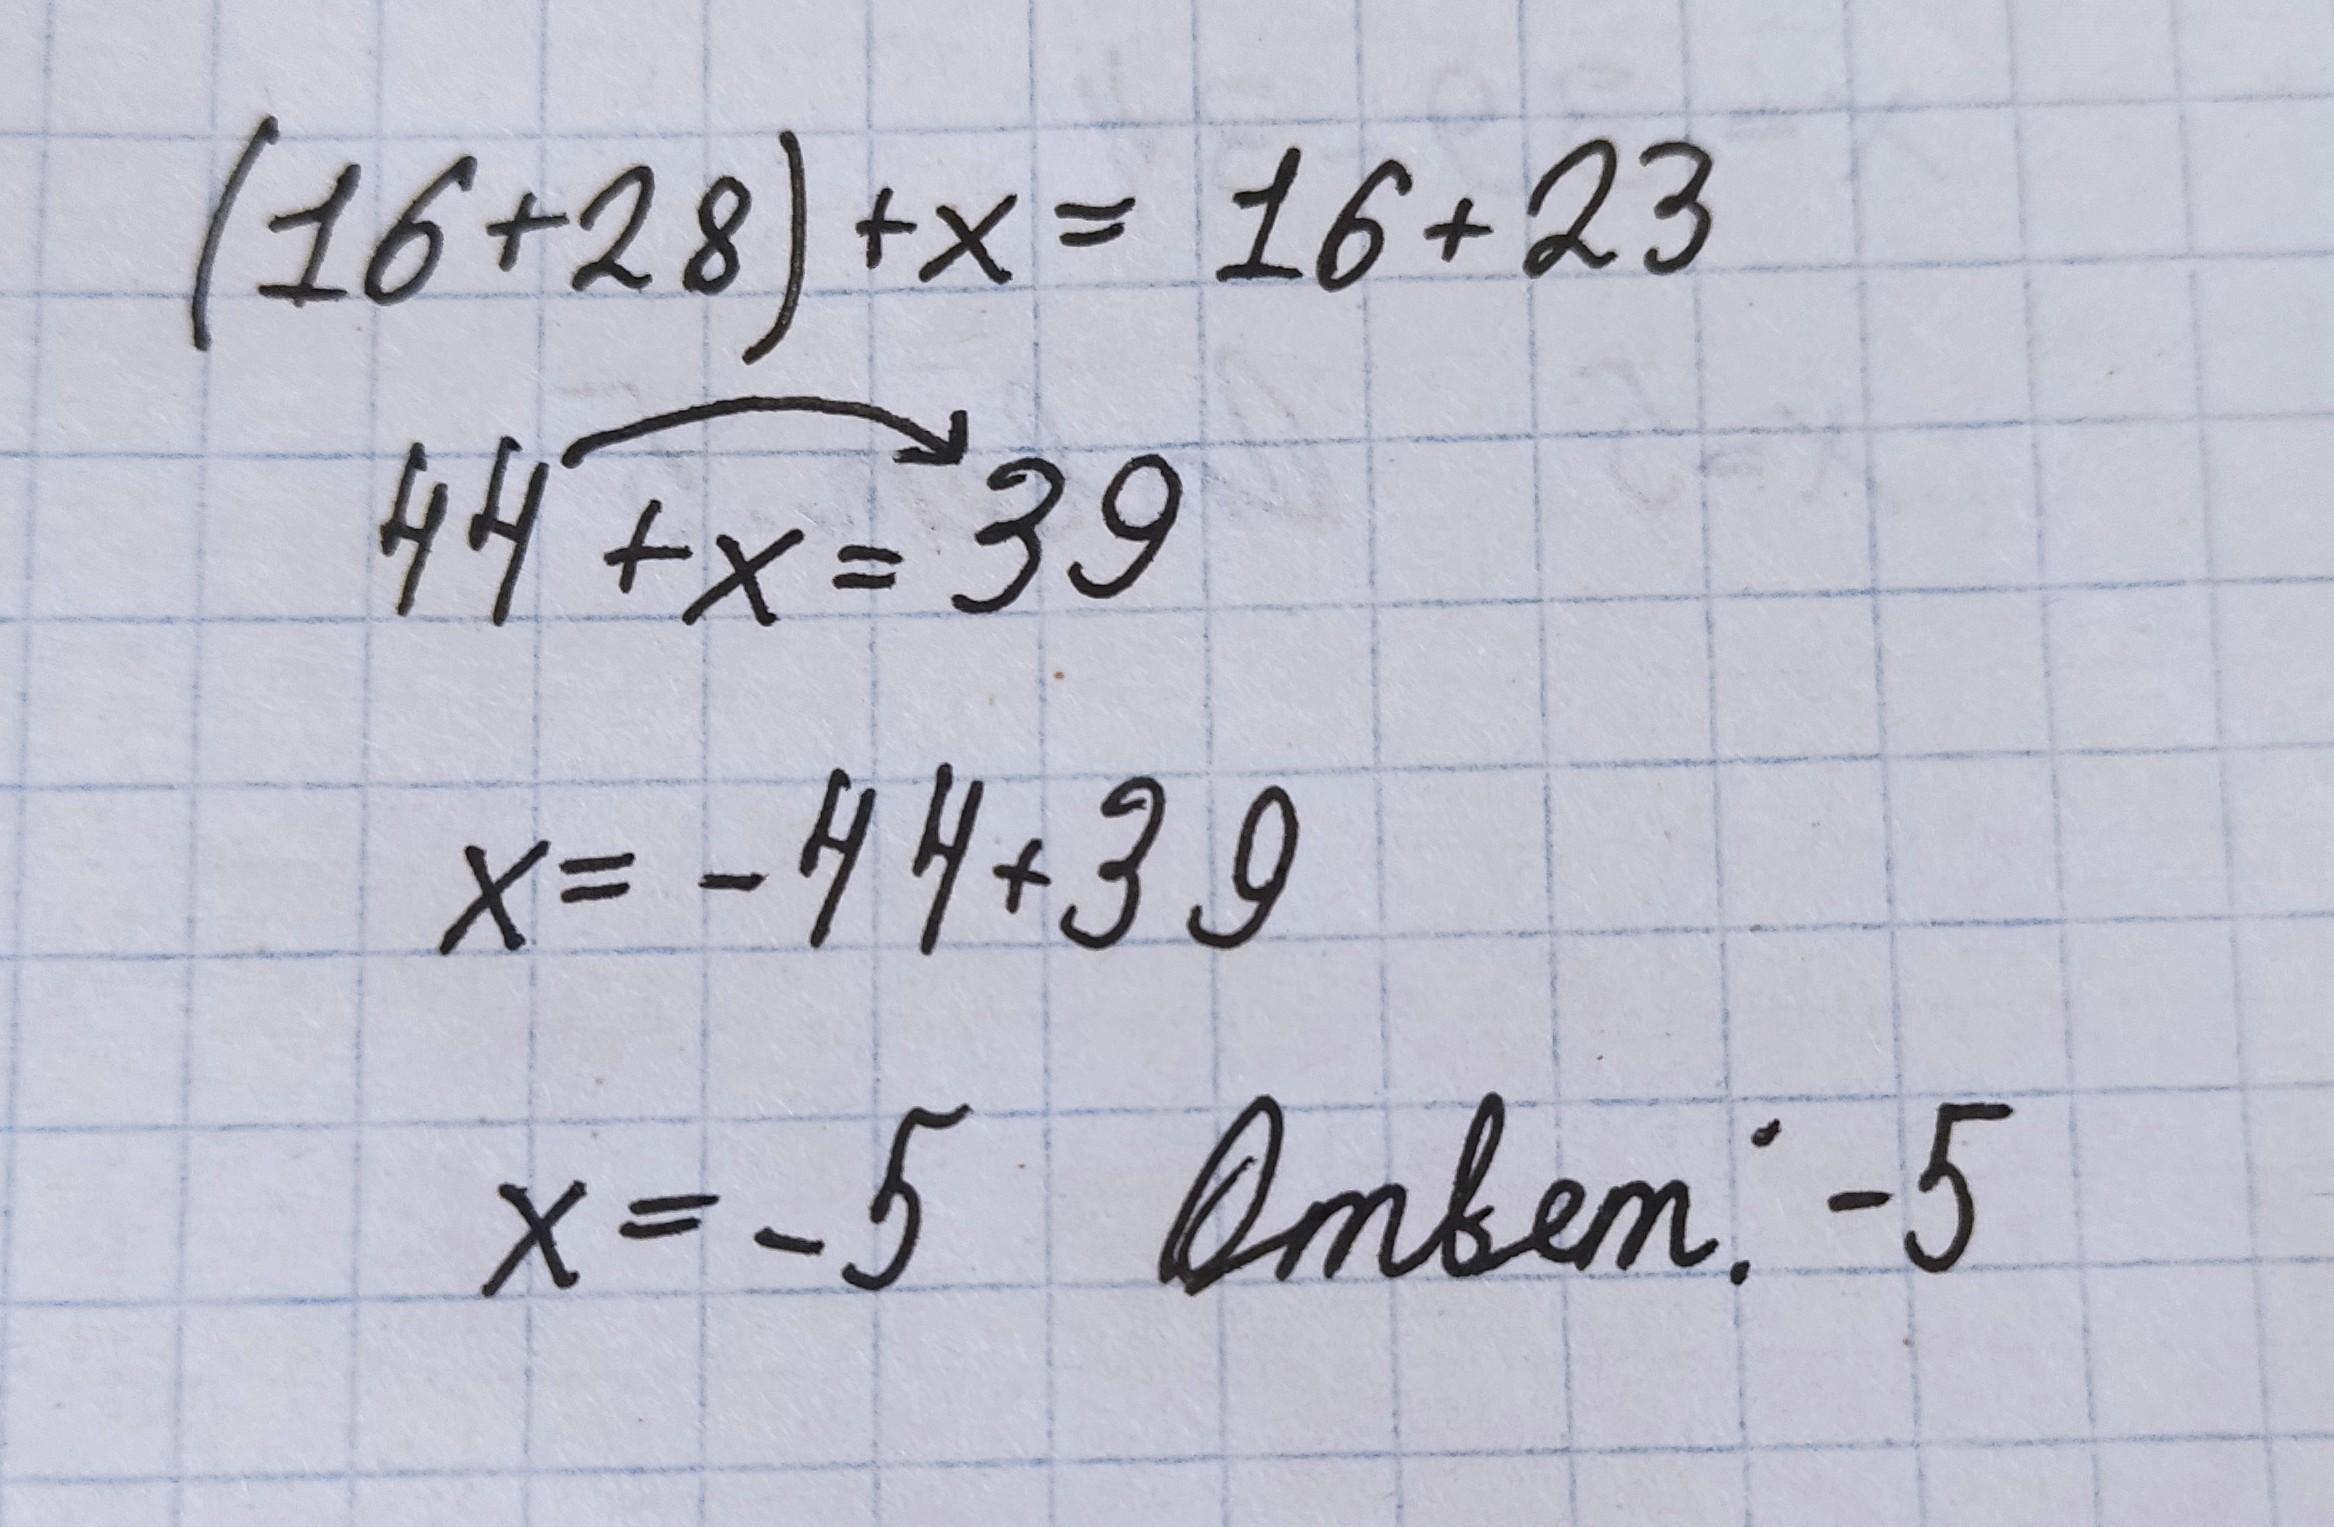 (16+28)+x= 16+23
44+x=39
x= -44+39
x=-5 Ответ: -5